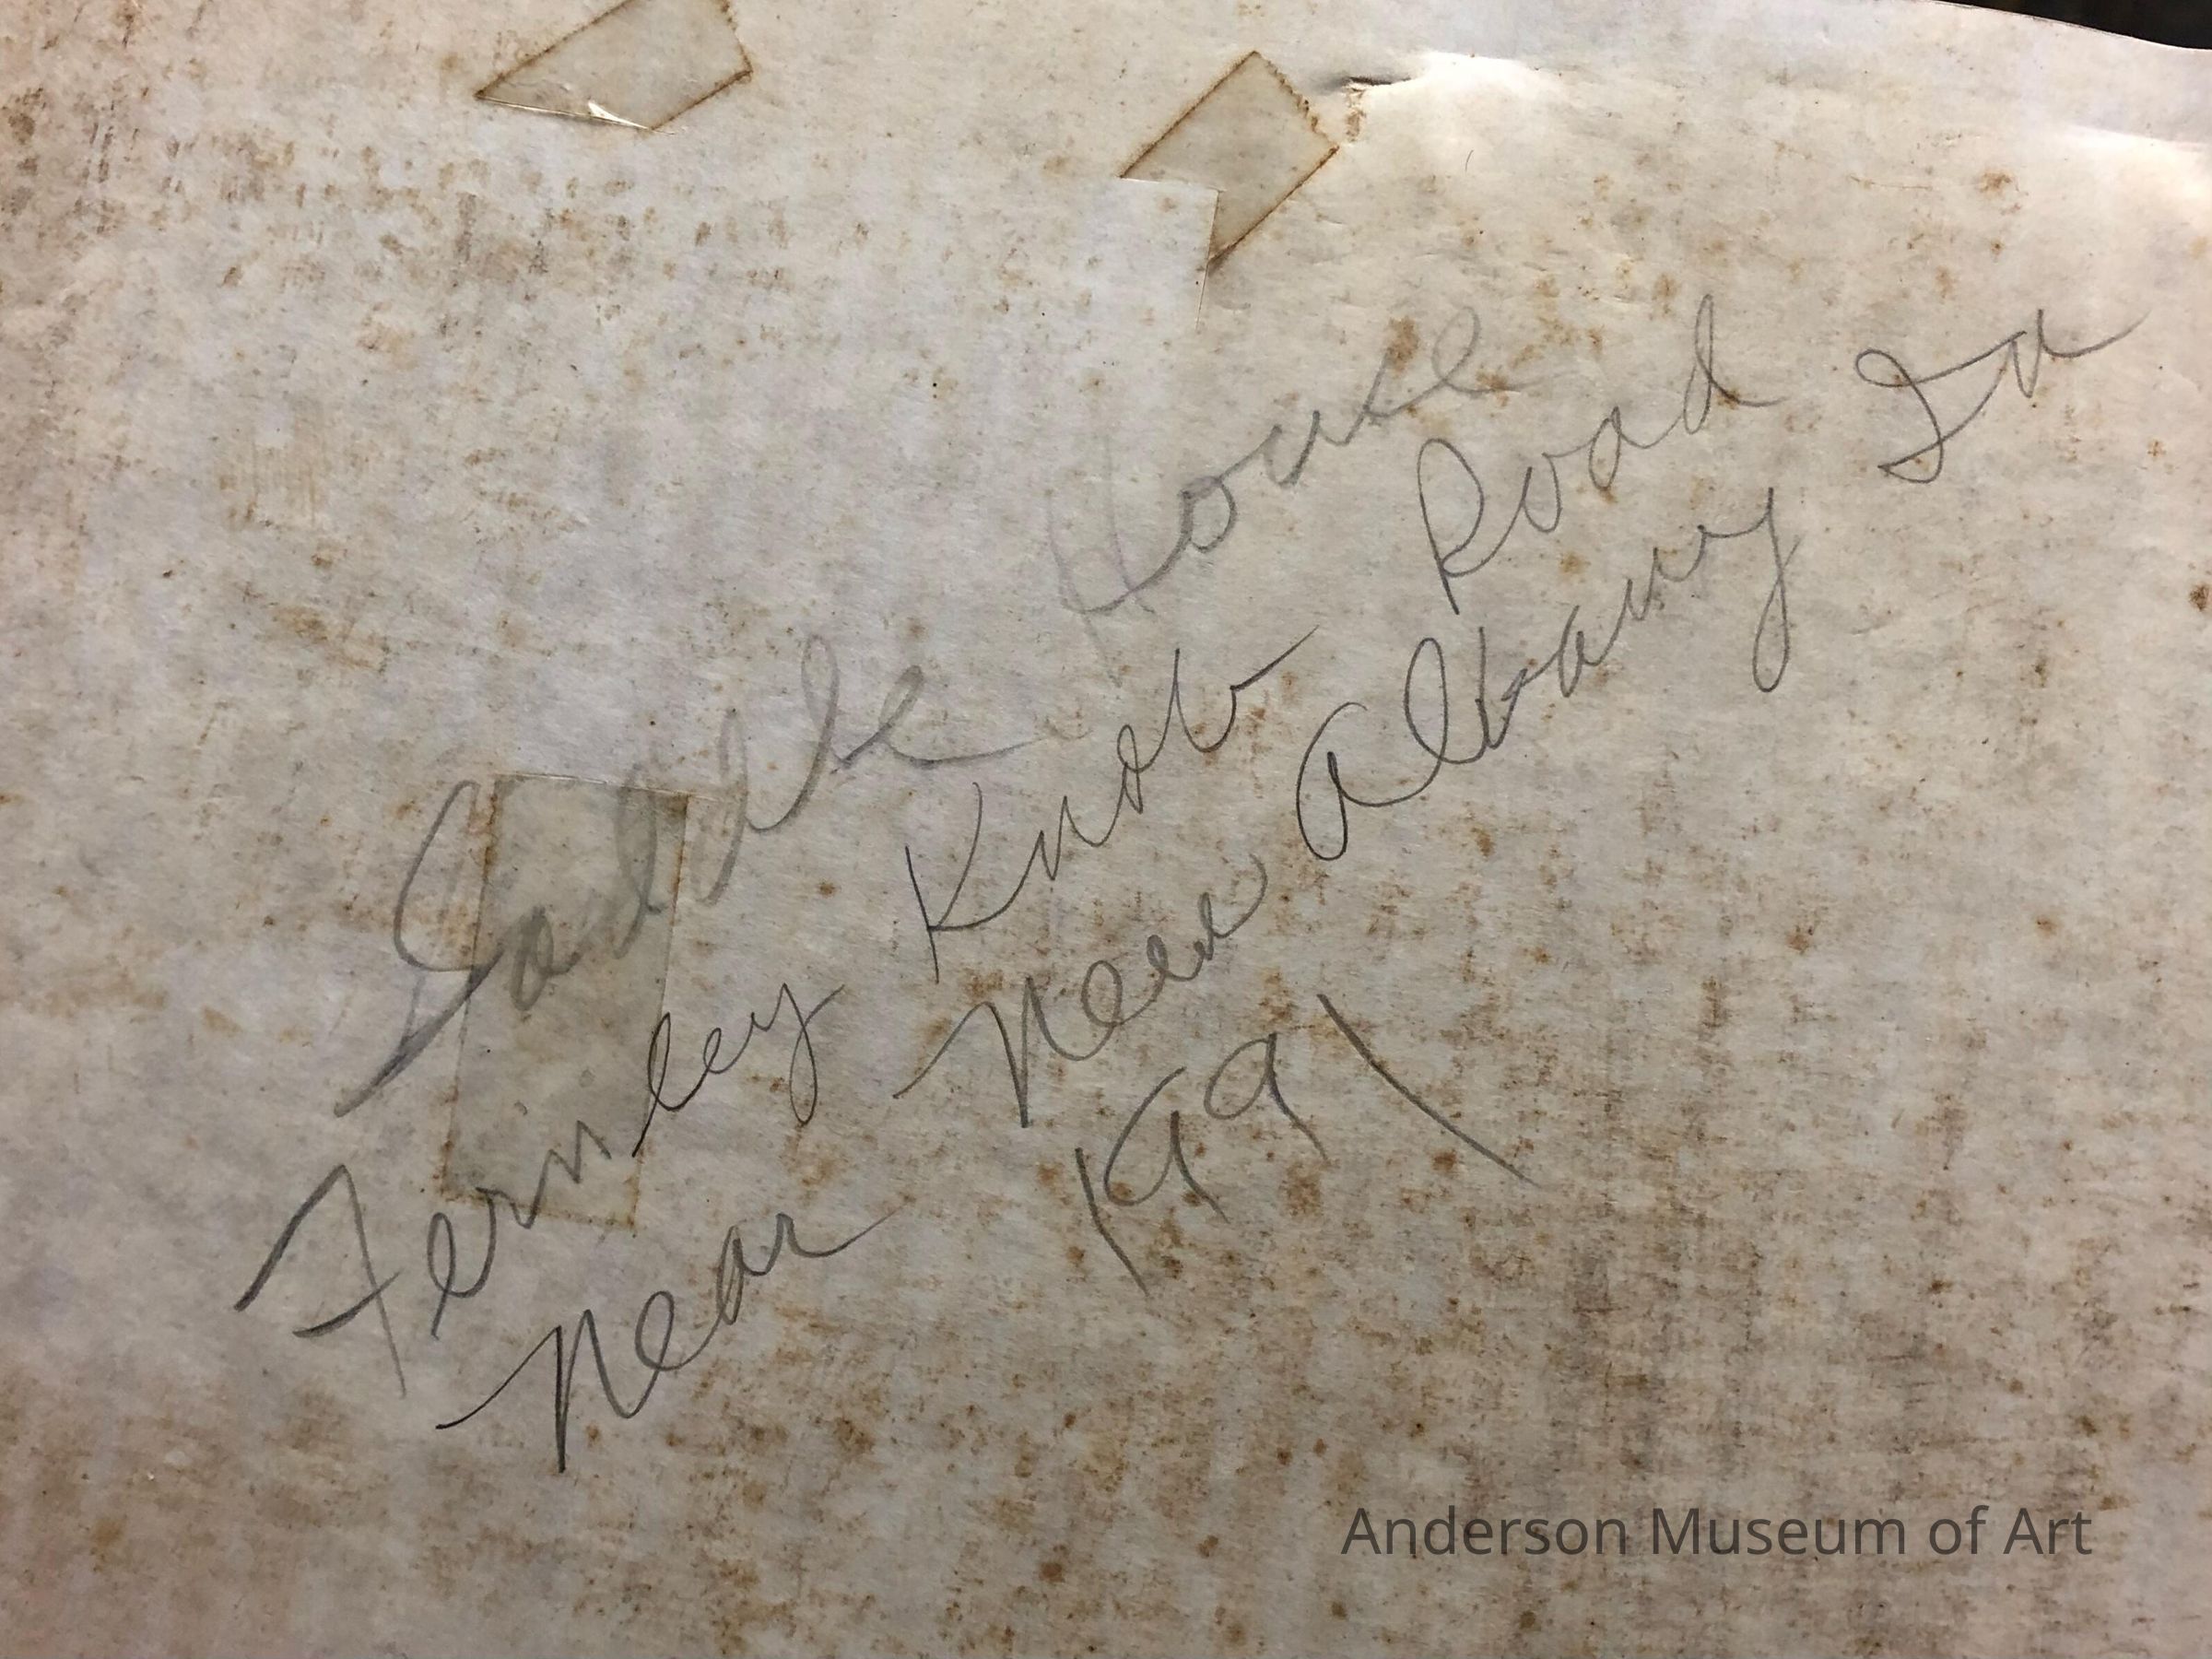 Saddle House
Fernley Knob Road
Near New Albany In
1991
Anderson Museum of Art